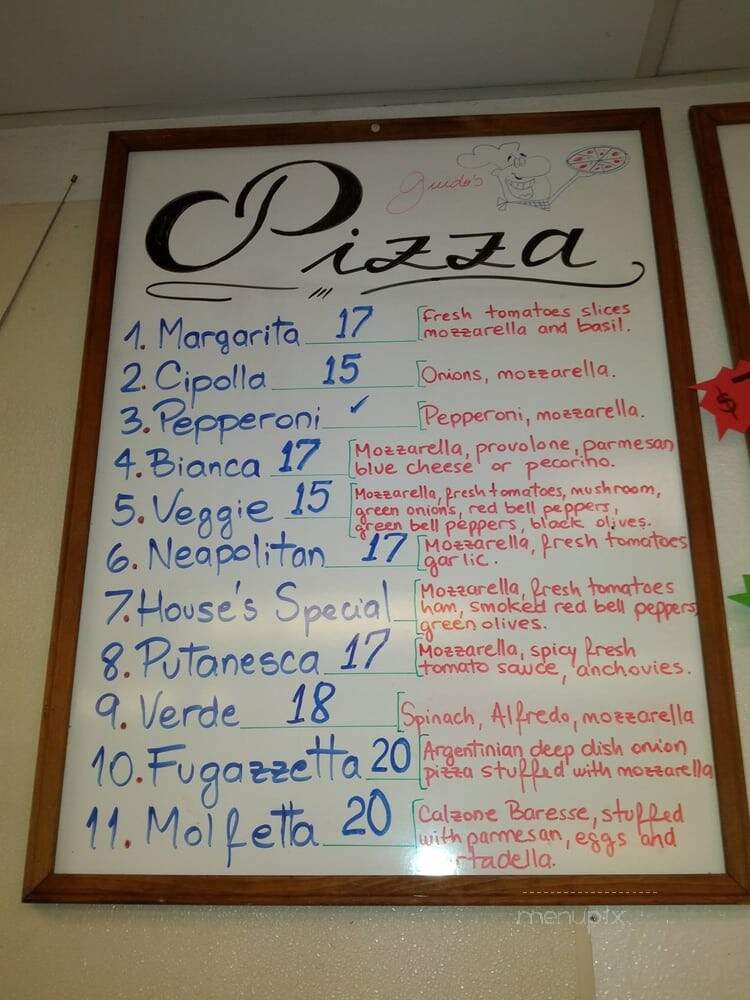 Guido's
Pizza
1. Margarita 17 Fresh tomatoes slices
mozzarella and basil.
2. Cipolla 15 Onions, mozzarella.
3. Pepperoni ✓ Pepperoni, mozzarella.
4. Bianca 17 Mozzarella, provolone, parmesan
blue cheese or pecorino.
5. Veggie 15 Mozzarella, fresh tomatoes, mushroom,
green onions, red bell peppers,
green bell peppers, black olives.
6. Neapolitan 17 Mozzarella, fresh tomatoes
garlic.
7. House's Special Mozzarella, fresh tomatoes
ham, smoked red bell peppers,
green olives.
8. Putanesca 17 Mozzarella, spicy fresh
tomato sauce, anchovies.
9. Verde 18 Spinach, Alfredo, mozzarella
10. Fugazzetta 20 Argentinian deep dish onion
pizza stuffed with mozzarella
11. Molfetta 20 Calzone Baresse, stuffed
with parmesan, eggs and
rtadella.
menupix